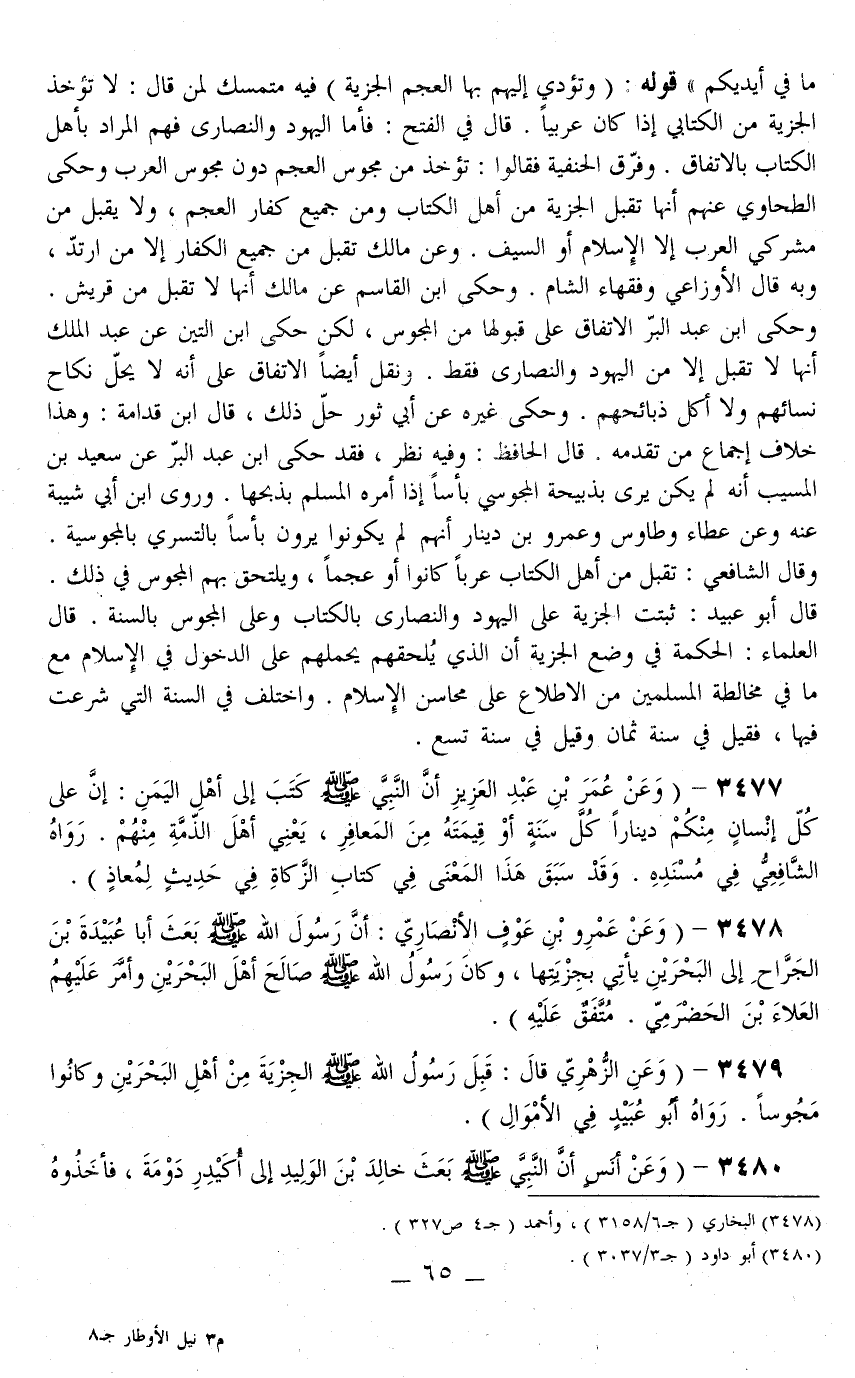 ما في أيديكم » قوله : ( وتؤدي إليهم بها العجم الجزية ) فيه متمسك لمن قال : لا تؤخذ
الجزية من الكتابي إذا كان عربياً . قال في الفتح : فأما اليهود والنصارى فهم المراد بأهل
الكتاب بالاتفاق . وفرّق الحنفية فقالوا : تؤخذ من مجوس العجم دون مجوس العرب وحكى
الطحاوي عنهم أنها تقبل الجزية من أهل الكتاب ومن جميع كفار العجم ، ولا يقبل من
مشركي العرب إلا الإسلام أو السيف . وعن مالك تقبل من جميع الكفار إلا من ارتدّ ،
وبه قال الأوزاعي وفقهاء الشام . وحكى ابن القاسم عن مالك أنها لا تقبل من قريش .
وحكى ابن عبد البرّ الاتفاق على قبولها من المجوس ، لكن حكى ابن التين عن عبد الملك
أنها لا تقبل إلا من اليهود والنصارى فقط . ونقل أيضاً الاتفاق على أنه لا يحلّ نكاح
نسائهم ولا أكل ذبائحهم . وحكى غيره عن أبي ثور حلّ ذلك ، قال ابن قدامة : وهذا
خلاف إجماع من تقدمه . قال الحافظ : وفيه نظر ، فقد حكى ابن عبد البرّ عن سعيد بن
المسيب أنه لم يكن يرى بذبيحة المجوسي بأساً إذا أمره المسلم بذبحها . وروى ابن أبي شيبة
عنه وعن عطاء وطاوس وعمرو بن دينار أنهم لم يكونوا يرون بأساً بالتسري بالمجوسية .
وقال الشافعي : تقبل من أهل الكتاب عرباً كانوا أو عجماً ، ويلتحق بهم المجوس في ذلك .
قال أبو عبيد : ثبتت الجزية على اليهود والنصارى بالكتاب وعلى المجوس بالسنة . قال
العلماء : الحكمة في وضع الجزية أن الذي يُلحقهم يحملهم على الدخول في الإسلام مع
ما في مخالطة المسلمين من الاطلاع على محاسن الإسلام . واختلف في السنة التي شرعت
فيها ، فقيل في سنة ثمان وقيل في سنة تسع .
٣٤٧٧ – ( وَعَنْ عُمَرَ بْنِ عَبْدِ العَزِيزِ أنَّ النَّبِيَّ ﷺ كَتَبَ إلى أهْلِ اليَمَنِ : إنَّ على
كُلّ إنْسانٍ مِنْكُمْ ديناراً كُلَّ سَنَةٍ أوْ قِيمَتَهُ مِنَ المَعافِرِ ، يَعْنِي أهْلَ الذّمَّةِ مِنْهُمْ . رَوَاهُ
الشَّافِعِيُّ فِي مُسْنَدِهِ . وَقَدْ سَبَقَ هَذَا المَعْنَى فِي كتابِ الزَّكاةِ فِي حَدِيثٍ لِمُعاذٍ ) .
٣٤٧٨ – ( وَعَنْ عَمْرِو بْنِ عَوْفٍ الأنْصَارِيّ : أنَّ رَسُولَ الله ﷺ بَعَثَ أبا عُبَيْدَةَ بْنَ
الجَرَّاحِ إلى البَحْرَيْنِ يأتِي بِجِزْيَتِها ، وكانَ رَسُولُ الله ﷺ صَالَحَ أهْلَ البَحْرَيْنِ وأمَّرَ عَلَيْهِمُ
العَلاءَ بْنَ الحَضْرَمِيّ . مُتَّفَقٌ عَلَيْهِ ) .
٣٤٧٩ – ( وَعَنِ الزُّهْرِيّ قالَ : قَبِلَ رَسُولُ الله ﷺ الجِزْيَةَ مِنْ أهْلِ البَحْرَيْنِ وكانُوا
مَجُوساً . رَوَاهُ أبُو عُبَيْدٍ فِي الأمْوَالِ ) .
٣٤٨٠ – ( وَعَنْ أنَسٍ أنَّ النَّبِيَّ ﷺ بَعَثَ خالِدَ بْنَ الوَلِيدِ إلى أُكَيْدِرِ دَوْمَةَ ، فأخَذُوهُ
(٣٤٧٨) البخاري ( جـ٣١٥٨/٦ ) ، وأحمد ( جـ٤ ص٣٢٧ ) .
(٣٤٨٠) أبو داود ( جـ٣٠٣٧/٣ ) .
– ٦٥ –
م٣ نيل الأوطار جـ٨